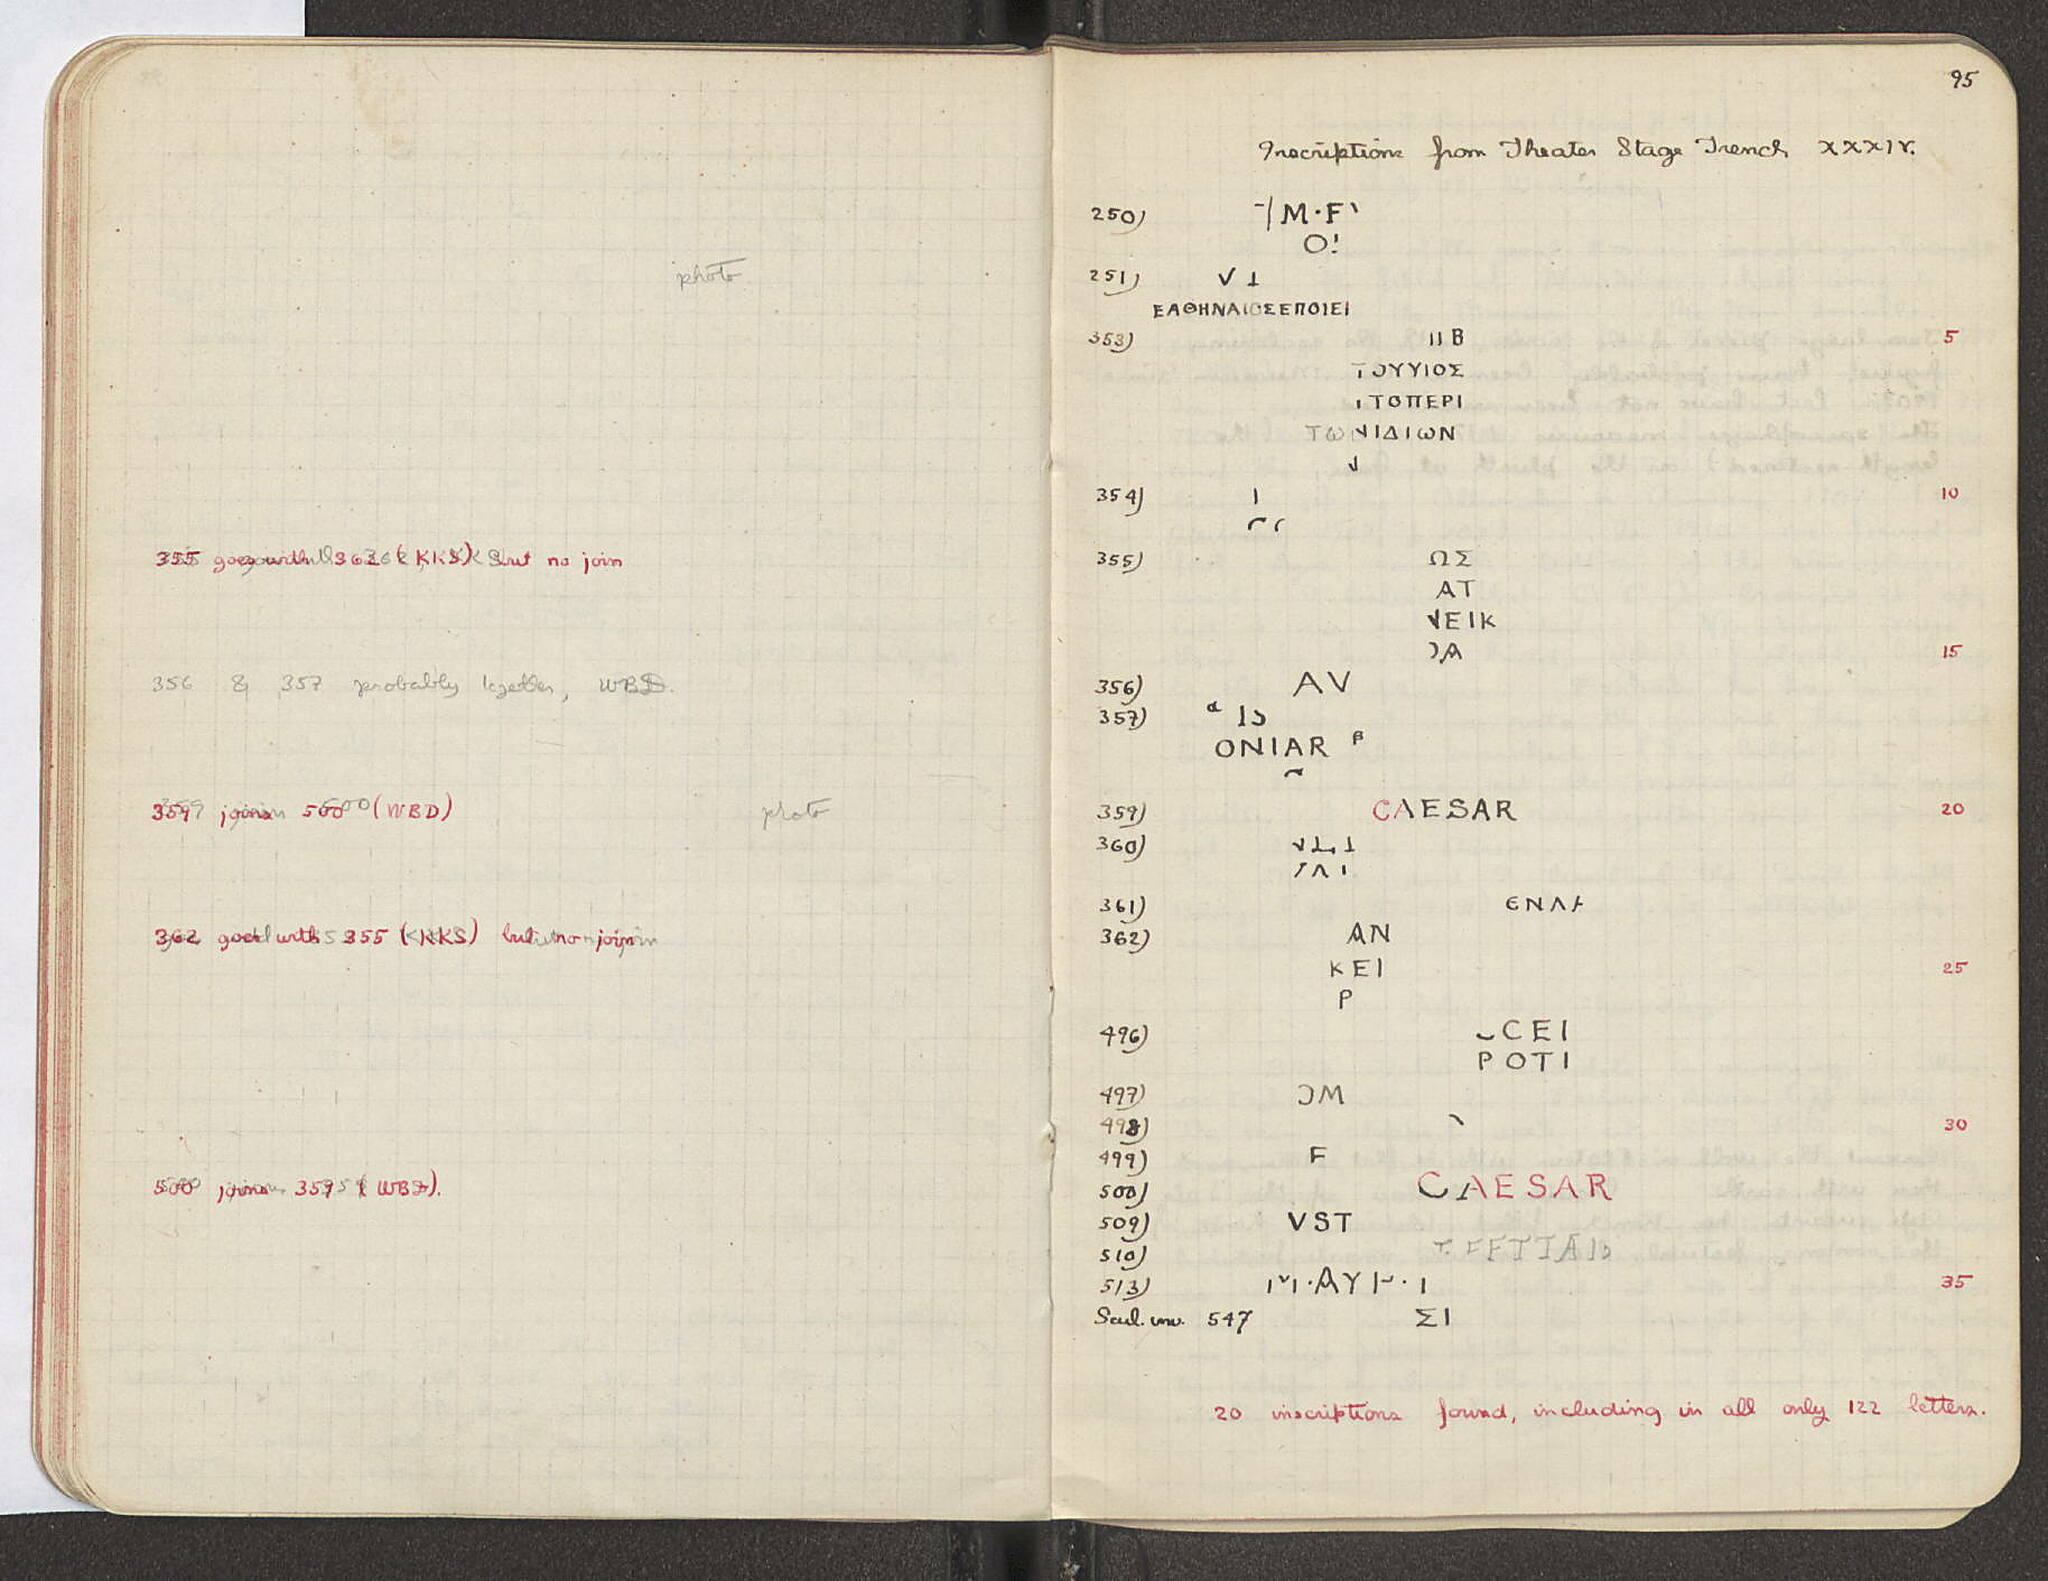 photo
355 goes with 362 (KKS) but no join
356 & 357 probably together, WBD.
359 joins 500 (WBD)
photo
362 goes with 355 (KKS) but no join
500 joins 359 (WBD).
95
Inscriptions from Theater Stage Trench XXXIV.
250) M·F
O
251) V
ΕΑΘΗΝΑΙΟΣΕΠΟΙΕΙ
353) ΙΙΒ 5
ΤΟΥΥΙΟΣ
ΤΟΠΕΡΙ
ΤΩΝΙΔΙΩΝ
354) Ι 10
355) ΩΣ
ΑΤ
ΝΕΙΚ
Α 15
356) AV
357) α
ONIAR β
359) CAESAR 20
360)
361) ΕΝΛ
362) ΑΝ
ΚΕΙ 25
Ρ
496) CEI
POTI
497) M
498) 30
499) F
500) CAESAR
509) VST
510)
513) ·ΑΥ 35
Scul. inv. 547 ΣΙ
20 inscriptions found, including in all only 122 letters.